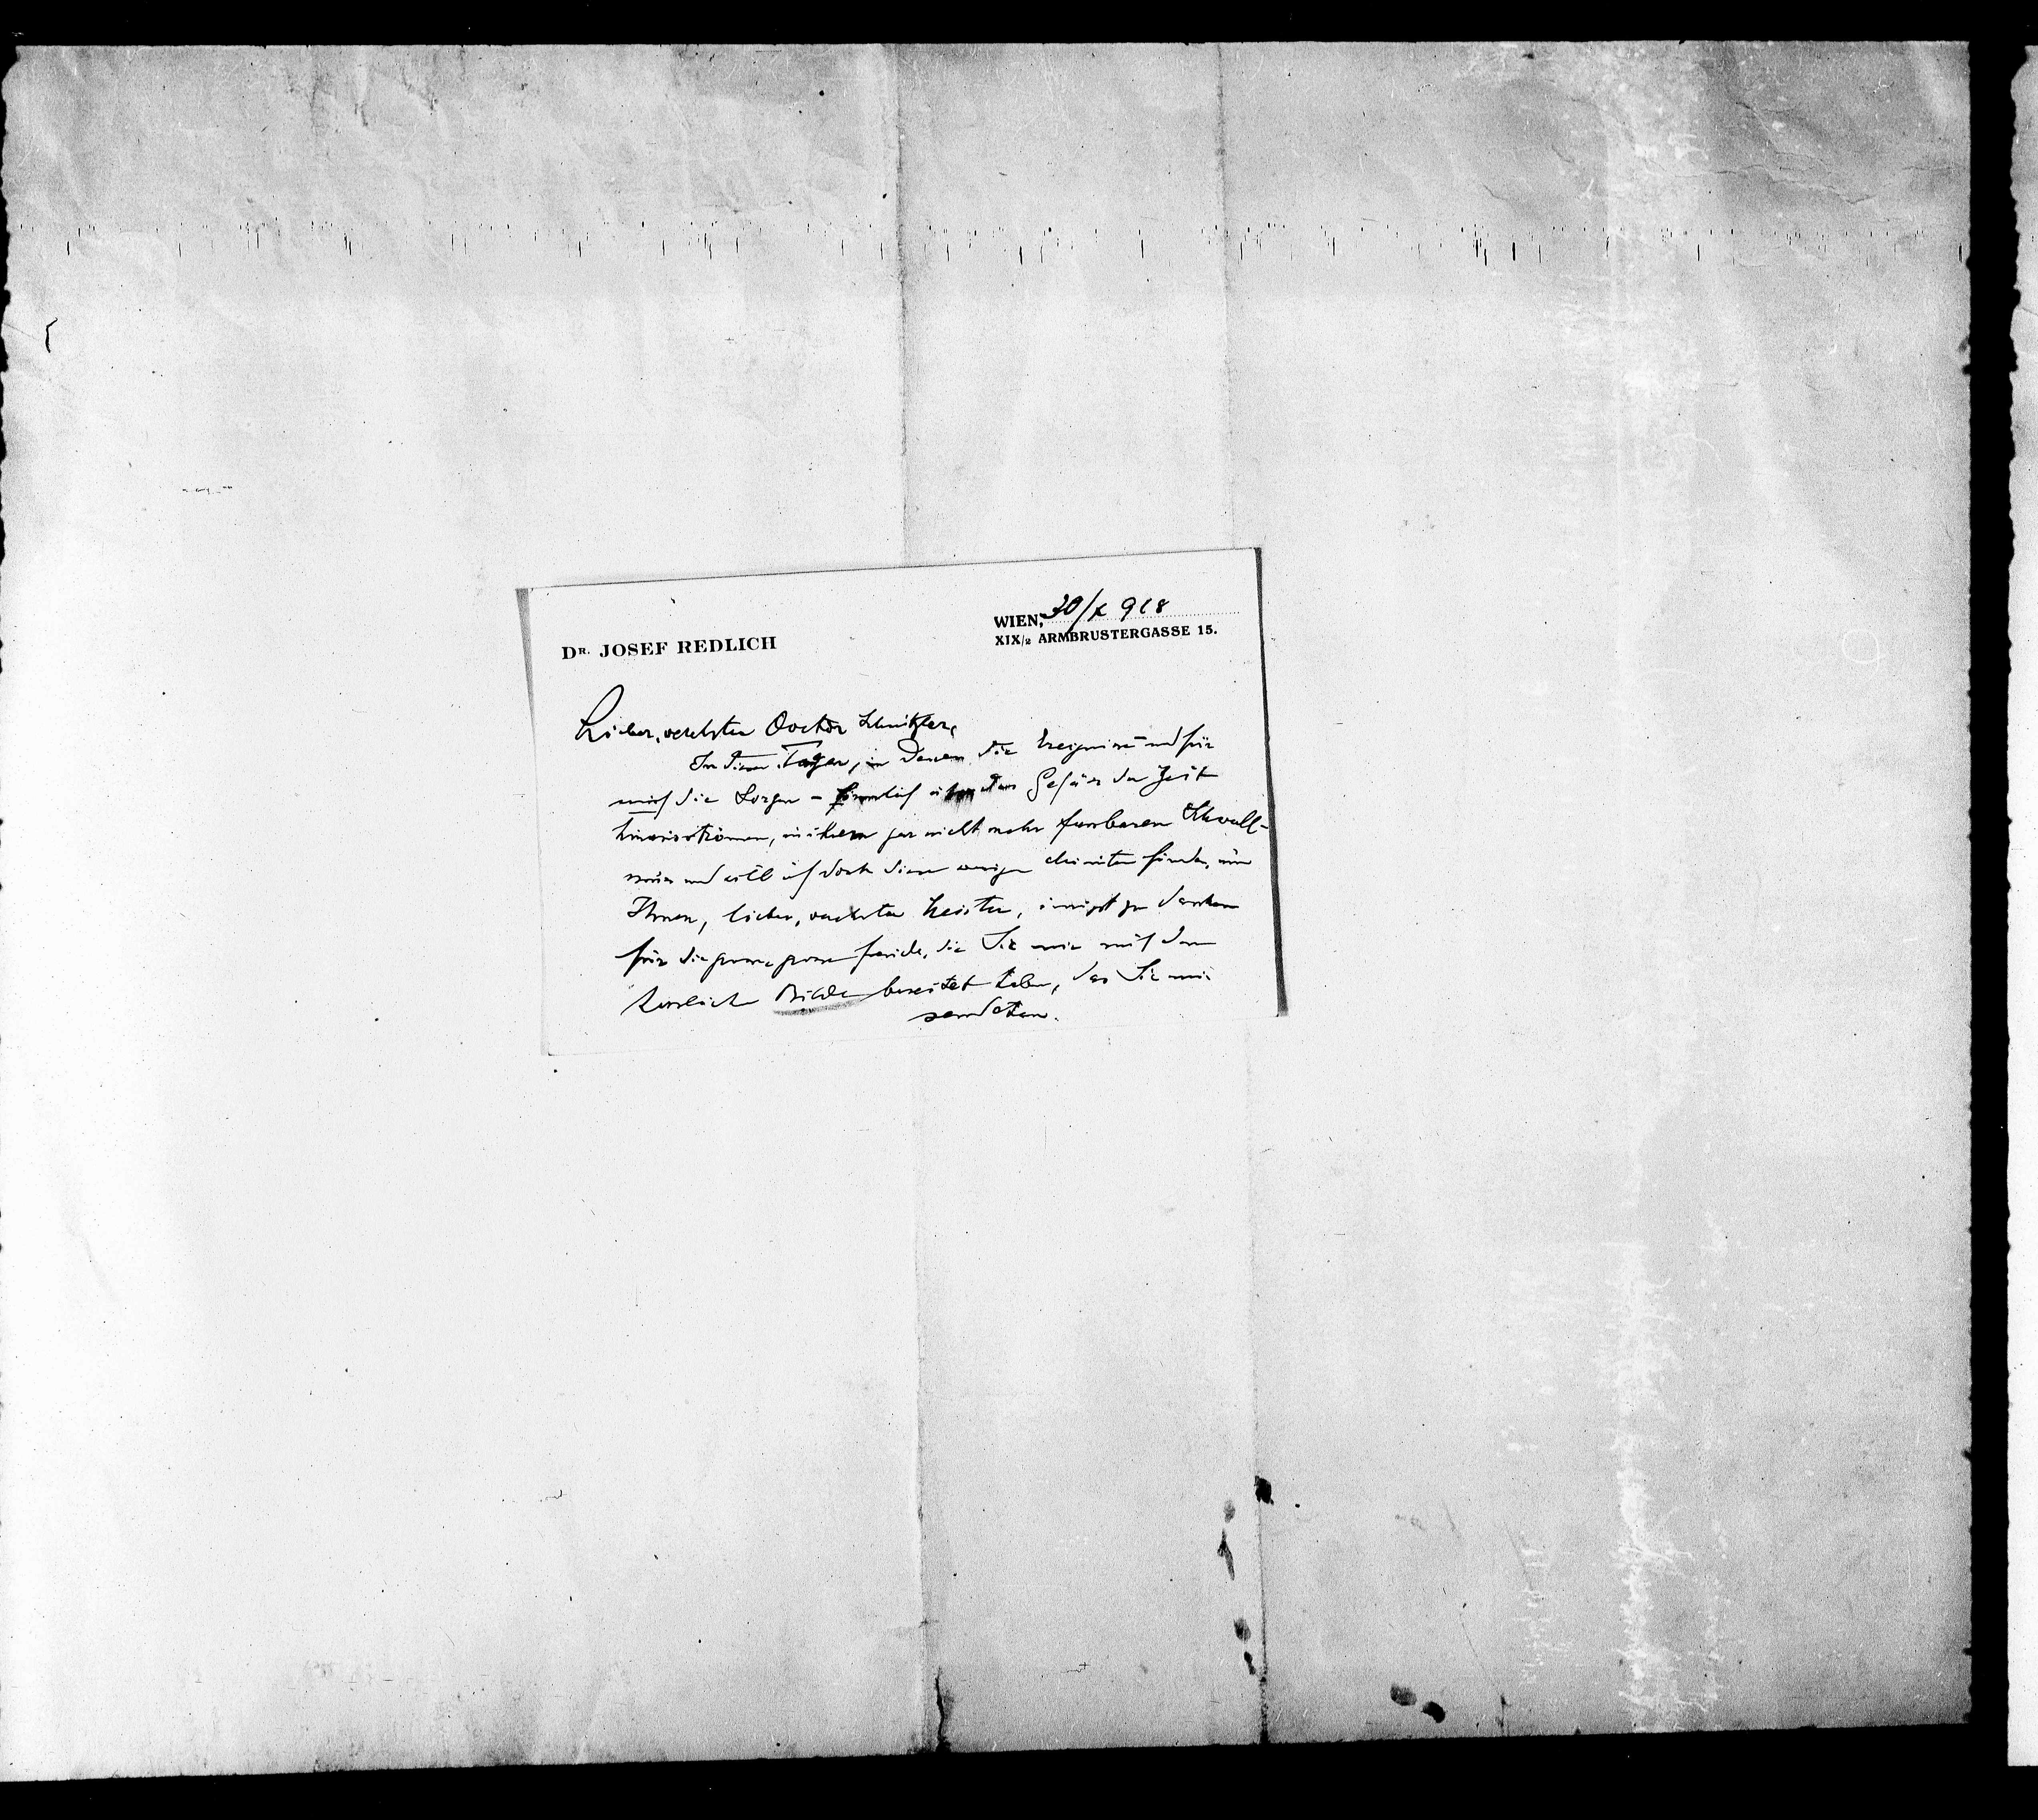 DR. JOSEF REDLICH
WIEN, 30/X 918
XIX/2 ARMBRUSTERGASSE 15.
Lieber, verehrter Doctor Schnitzler,
In diesen Tagen, in denen die Ereignisse und für
mich die Sorgen – förmlich über das Gefäss der Zeit
hinausströmen, in ihrem gar nicht mehr fassbaren Schwall –
muss und will ich doch diese wenigen Minuten finden, um
Ihnen, lieber, verehrter Meister, innigst zu danken
für die grosse grosse Freude, die Sie mir mit dem
herrlichen Bilde bereitet haben, das Sie mir
sandten.